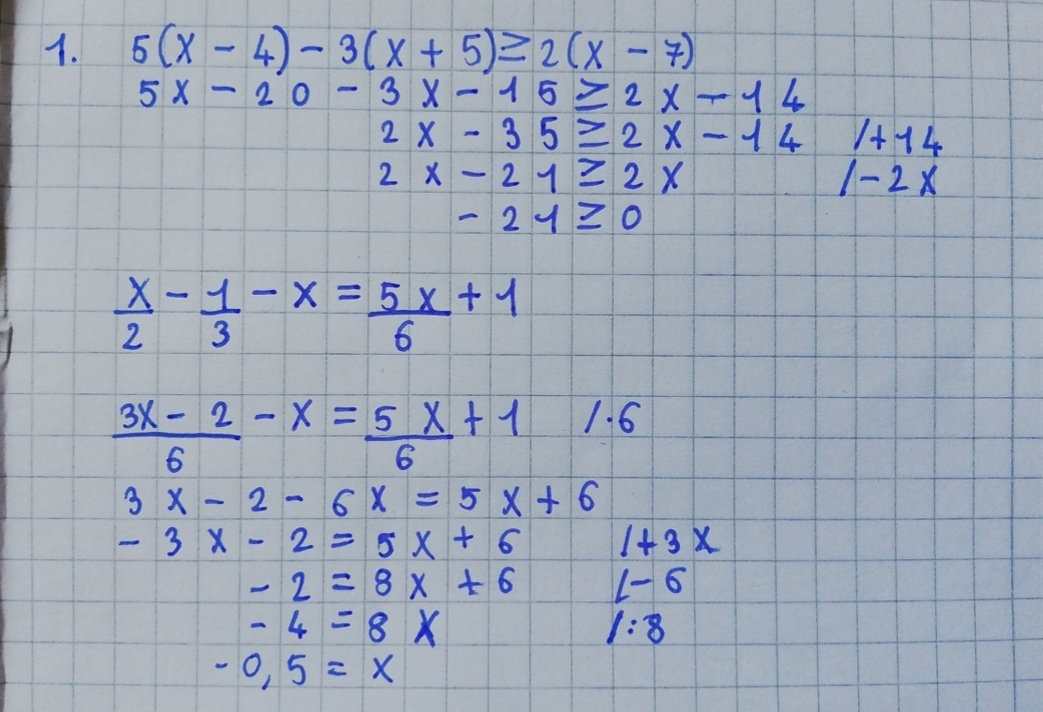 1. 5(x - 4) - 3(x + 5) ≥ 2(x - 7)
5x - 20 - 3x - 15 ≥ 2x - 14
2x - 35 ≥ 2x - 14 /+14
2x - 21 ≥ 2x /-2x
-21 ≥ 0
x/2 - 1/3 - x = 5x/6 + 1
(3x - 2)/6 - x = 5x/6 + 1 /·6
3x - 2 - 6x = 5x + 6
-3x - 2 = 5x + 6 /+3x
-2 = 8x + 6 /-6
-4 = 8x /:8
-0,5 = x